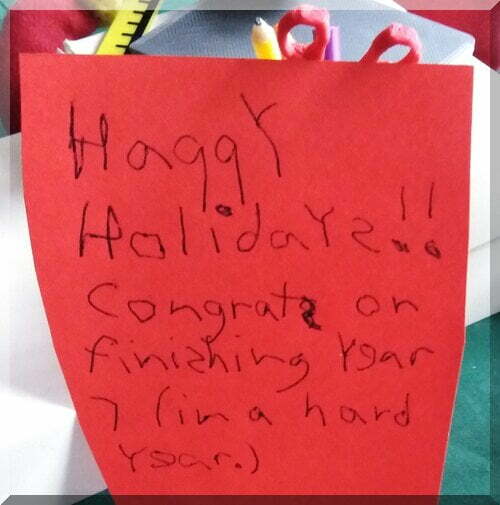 Happy
Holidays!!
Congrats on
finishing Year
7 (in a hard
year.)